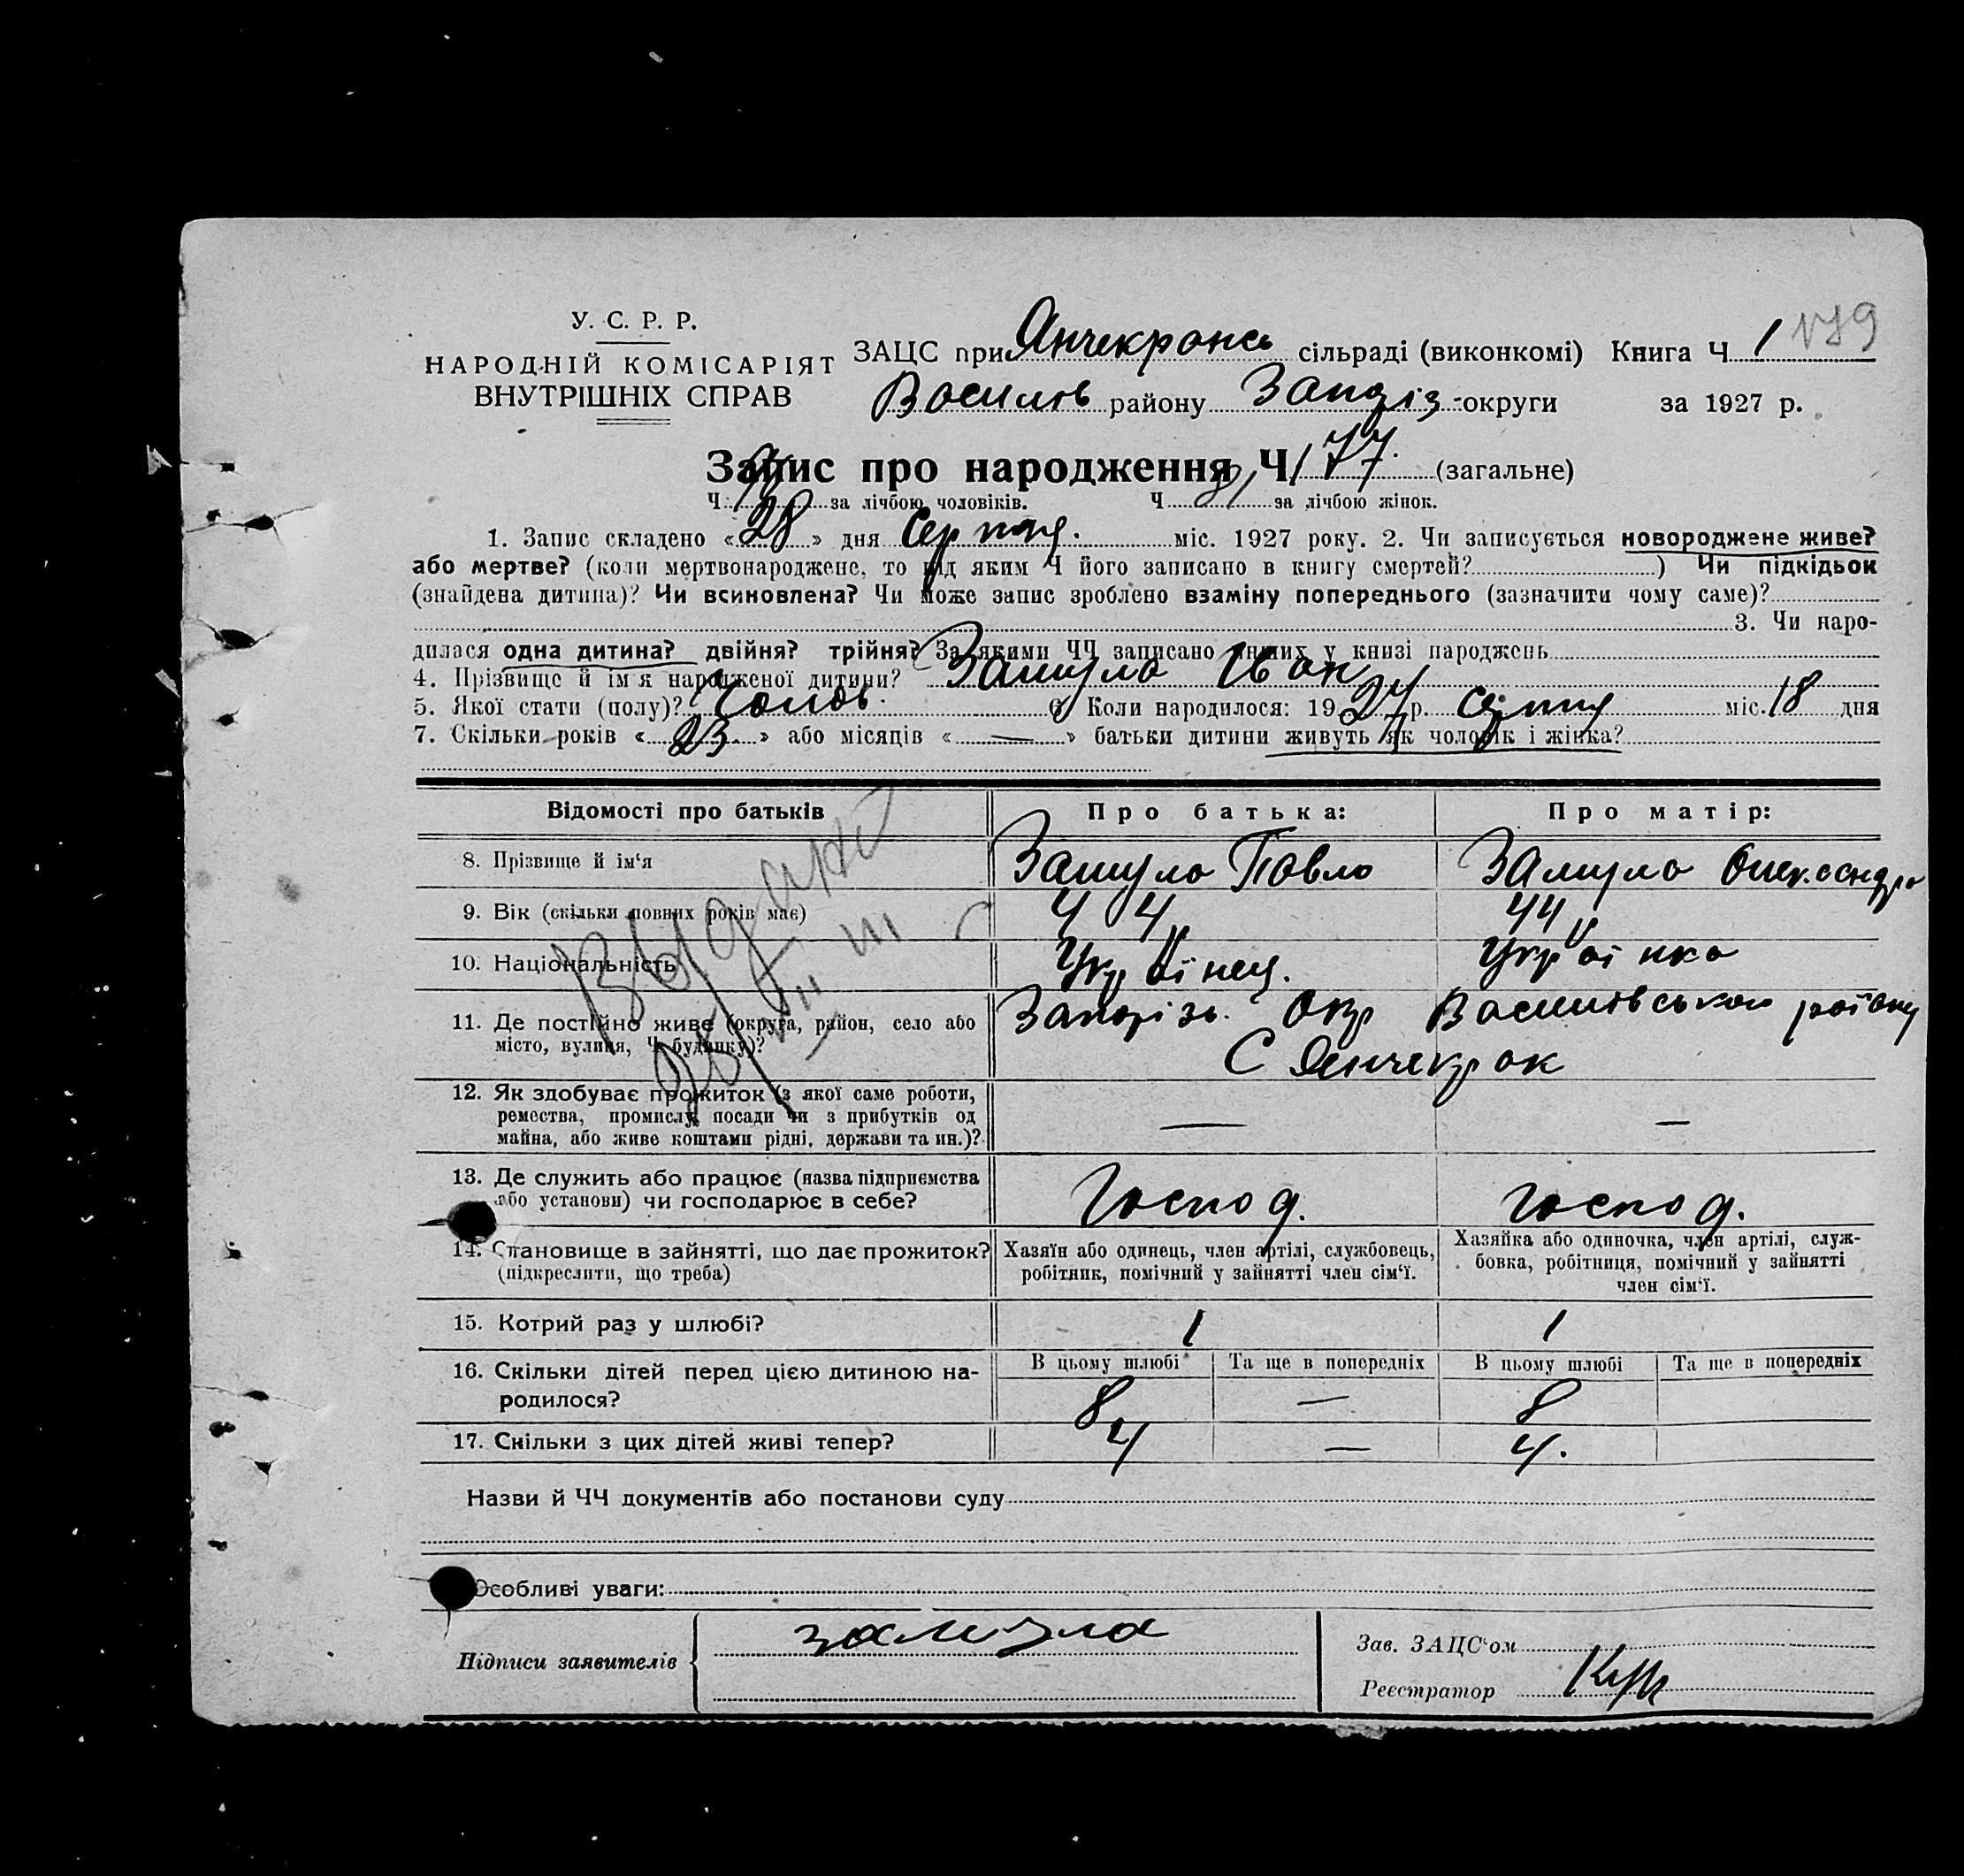 У. С. Р. Р.
НАРОДНІЙ КОМІСАРІЯТ
ВНУТРІШНІХ СПРАВ
ЗАЦС при Янчекракс сільраді (виконкомі) Книга Ч 1 179
Василів району Запоріз округи за 1927 р.
Запис про народження Ч 177. (загальне)
Ч за лічбою чоловіків. Ч 81 за лічбою жінок.
1. Запис складено «28» дня Серпня. міс. 1927 року. 2. Чи записується новороджене живе?
або мертве? (коли мертвонароджене, то під яким Ч його записано в книгу смертей? ) Чи підкідьок
(знайдена дитина)? Чи всиновлена? Чи може запис зроблено взаміну попереднього (зазначити чому саме)?
3. Чи наро-
дилася одна дитина? двійня? трійня? За якими ЧЧ записано инших у книзі народжень
4. Прізвище й ім'я народженої дитини? Замула Іван
5. Якої стати (полу)? Чолов. 6. Коли народилося: 1927 р. серпня міс. 18 дня
7. Скільки років «23» або місяців «—» батьки дитини живуть як чоловік і жінка?
Відомості про батьків Про батька: Про матір:
8. Прізвище й ім'я Замула Павло Замула Олександра
9. Вік (скільки повних років має) 44 44
10. Національність Українец. Українка
11. Де постійно живе (округа, район, село або Запорізь. Окр Василівського району
місто, вулиця, Ч будинку)? С Янчекрак
12. Як здобуває прожиток (з якої саме роботи,
ремества, промислу, посади чи з прибутків од — —
майна, або живе коштами рідні, держави та ин.)?
13. Де служить або працює (назва підприємства Господ. Господ.
або установи) чи господарює в себе?
14. Становище в зайнятті, що дає прожиток? Хазяїн або одинець, член артілі, службовець, Хазяйка або одиночка, член артілі, служ-
(підкреслити, що треба) робітник, помічний у зайнятті член сім'ї. бовка, робітниця, помічний у зайнятті
член сім'ї.
15. Котрий раз у шлюбі? 1 1
16. Скільки дітей перед цією дитиною на- В цьому шлюбі Та ще в попередніх В цьому шлюбі Та ще в попередніх
родилося? 8 — 8
17. Скільки з цих дітей живі тепер? 4 — 4.
Назви й ЧЧ документів або постанови суду
Особливі уваги:
Підписи заявителів замула
Зав. ЗАЦС'ом
Реєстратор